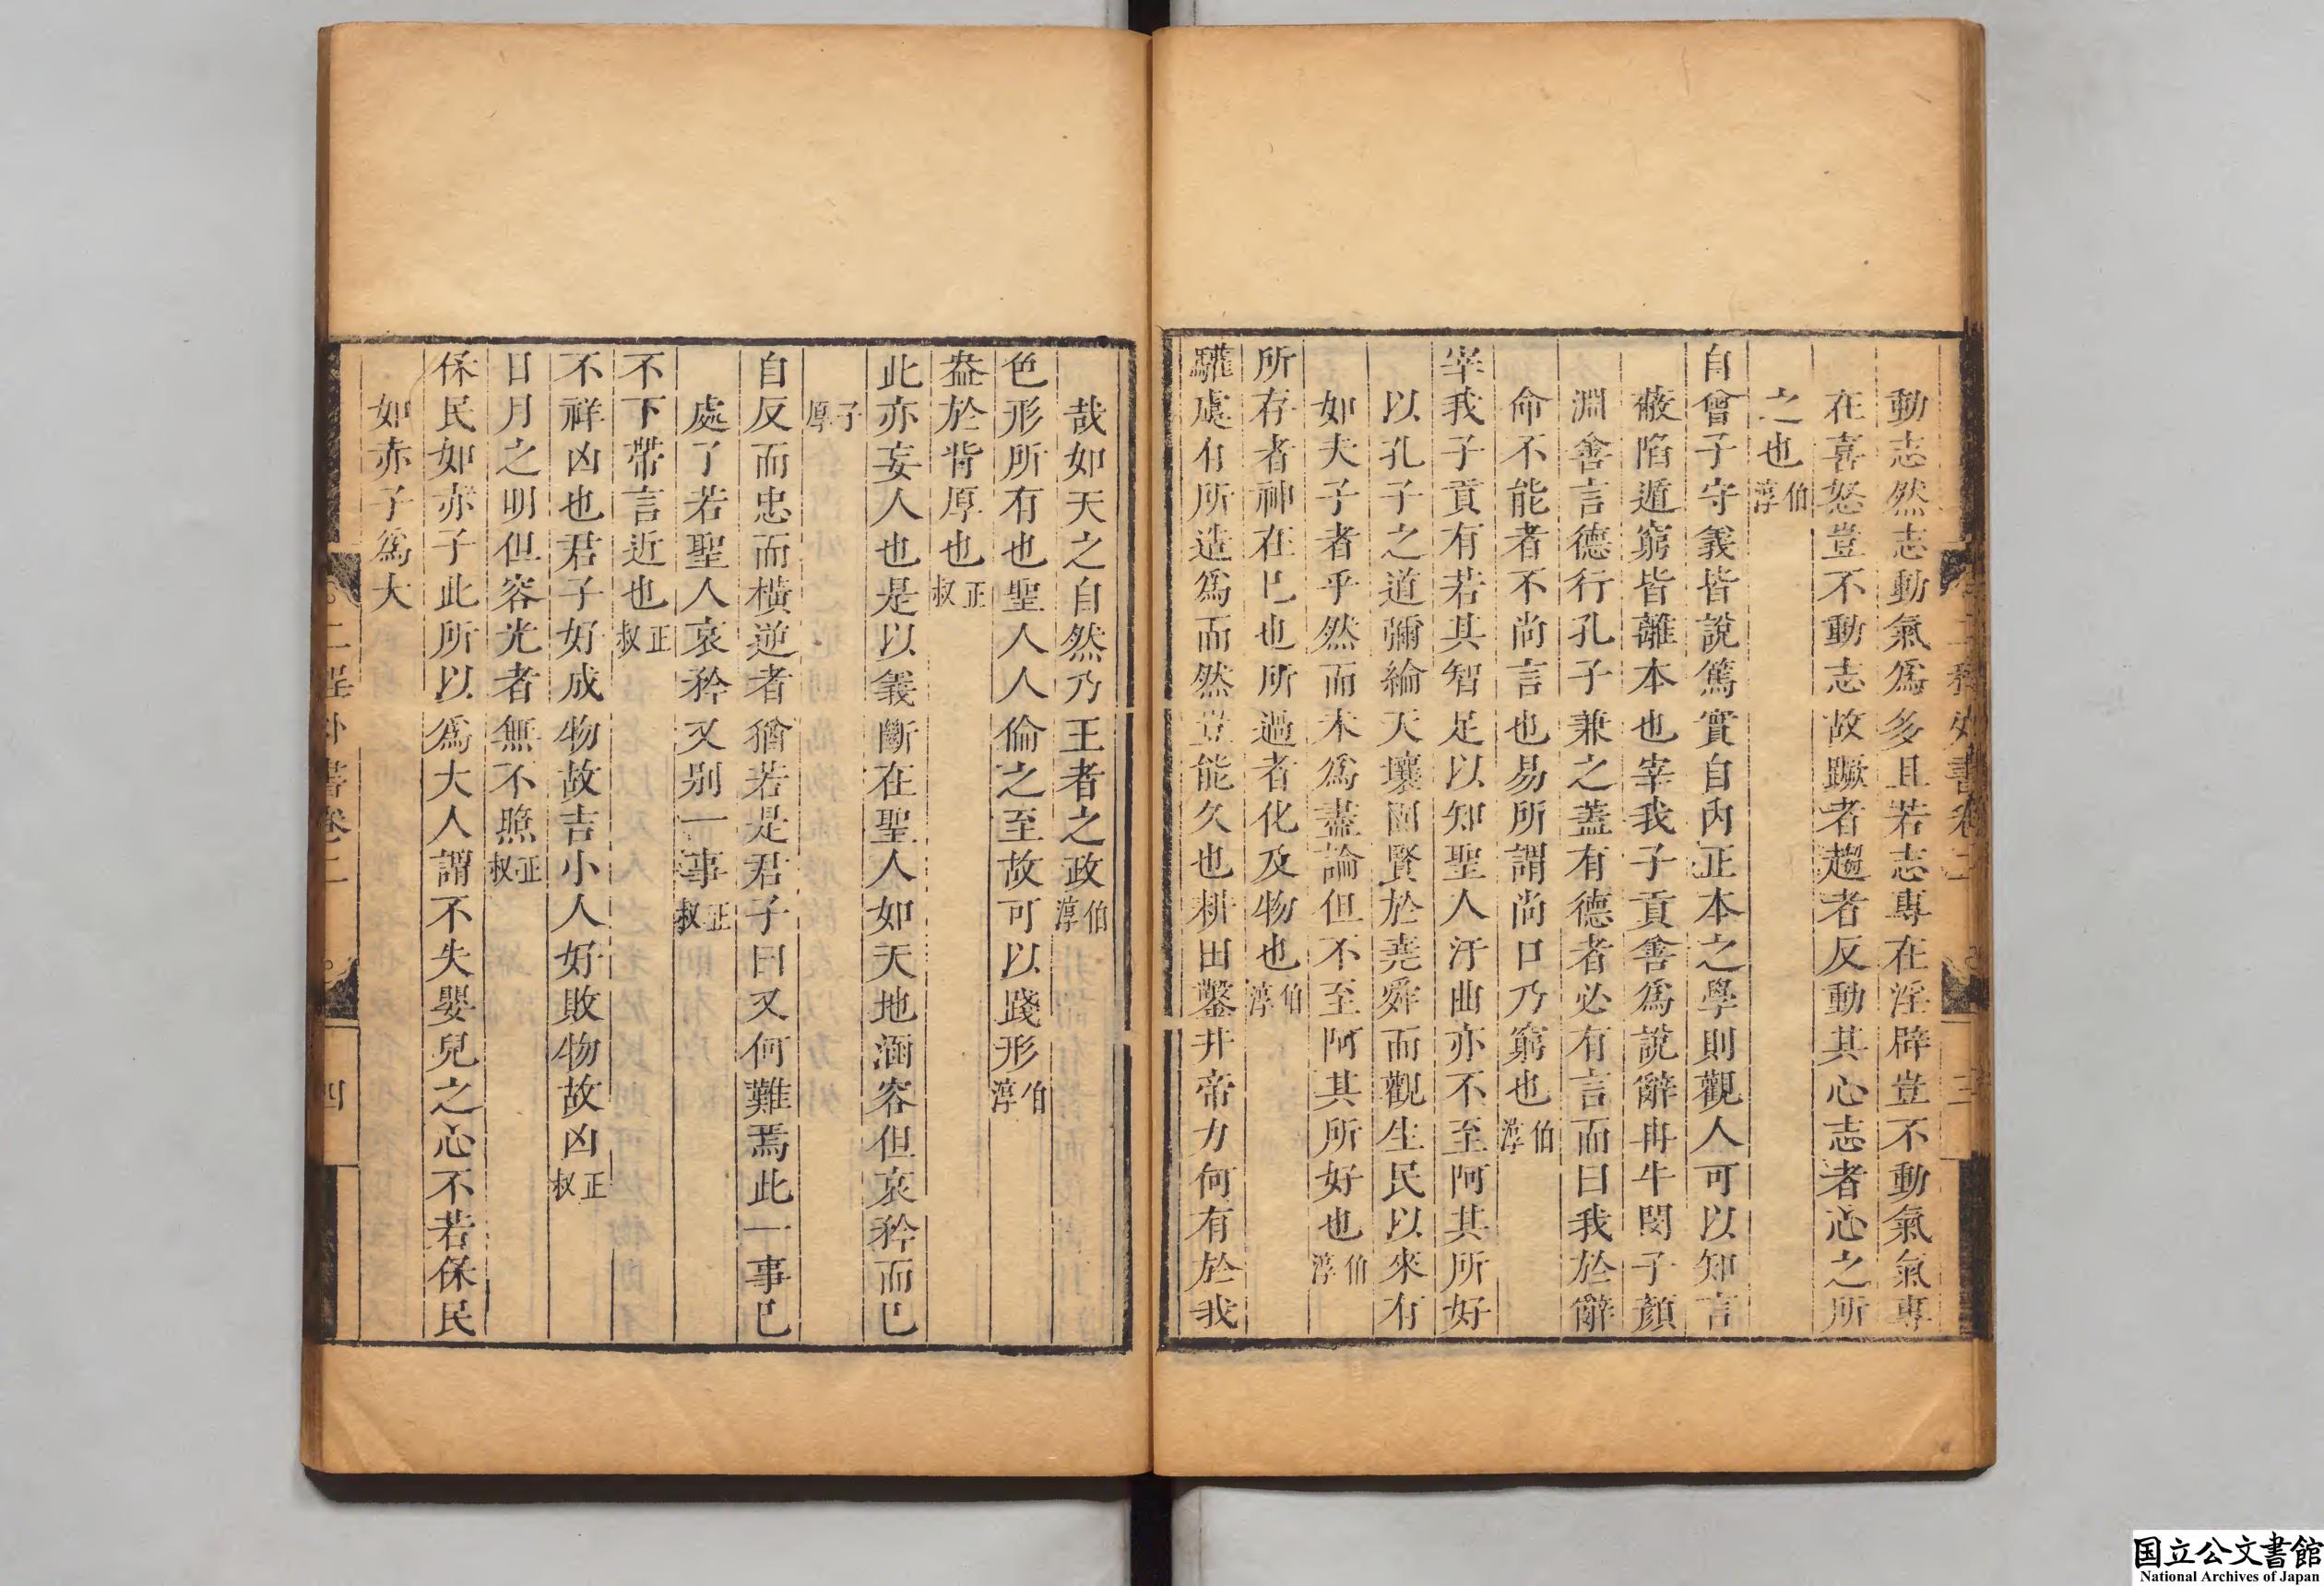 動志然志動氣爲多且若志專在淫辟豈不動氣氣專
在喜怒豈不動志故蹶者趨者反動其心志者心之所
之也伯淳
自曾子守義皆說篤實自内正本之學則觀人可以知言
蔽陷遁窮皆離本也宰我子貢善爲說辭冉牛閔子顏
淵善言德行孔子兼之蓋有德者必有言而曰我於辭
命不能者不尚言也易所謂尚口乃窮也伯淳
宰我子貢有若其智足以知聖人汙曲亦不至阿其所好
以孔子之道彌綸天壤固賢於堯舜而觀生民以來有
如夫子者乎然而未爲盡論但不至阿其所好也伯淳
所存者神在已也所過者化及物也伯淳
驩虞有所造爲而然豈能久也耕田鑿井帝力何有於我
哉如天之自然乃王者之政伯淳
色形所有也聖人人倫之至故可以踐形伯淳
盎於背厚也正叔
此亦妄人也是以義斷在聖人如天地涵容但哀矜而已
子厚
自反而忠而橫逆者猶若是君子曰又何難焉此一事已
處了若聖人哀矜又别一事正叔
不下帶言近也正叔
不祥凶也君子好成物故吉小人好敗物故凶正叔
日月之明但容光者無不照正叔
保民如赤子此所以爲大人謂不失嬰兒之心不若保民
如赤子爲大
二程外書卷二
四
三
国立公文書館
National Archives of Japan